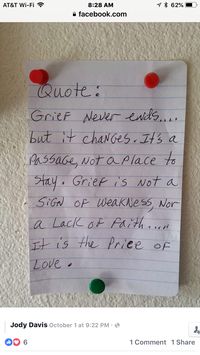 AT&T Wi-Fi 8:28 AM 62%
facebook.com
Quote:
Grief Never ends....
but it changes. It's a
Passage, Not a Place to
Stay. Grief is Not a
Sign of Weakness, Nor
a Lack of Faith.....
It is the Price of
Love.
Jody Davis October 1 at 9:22 PM ·
6 1 Comment 1 Share